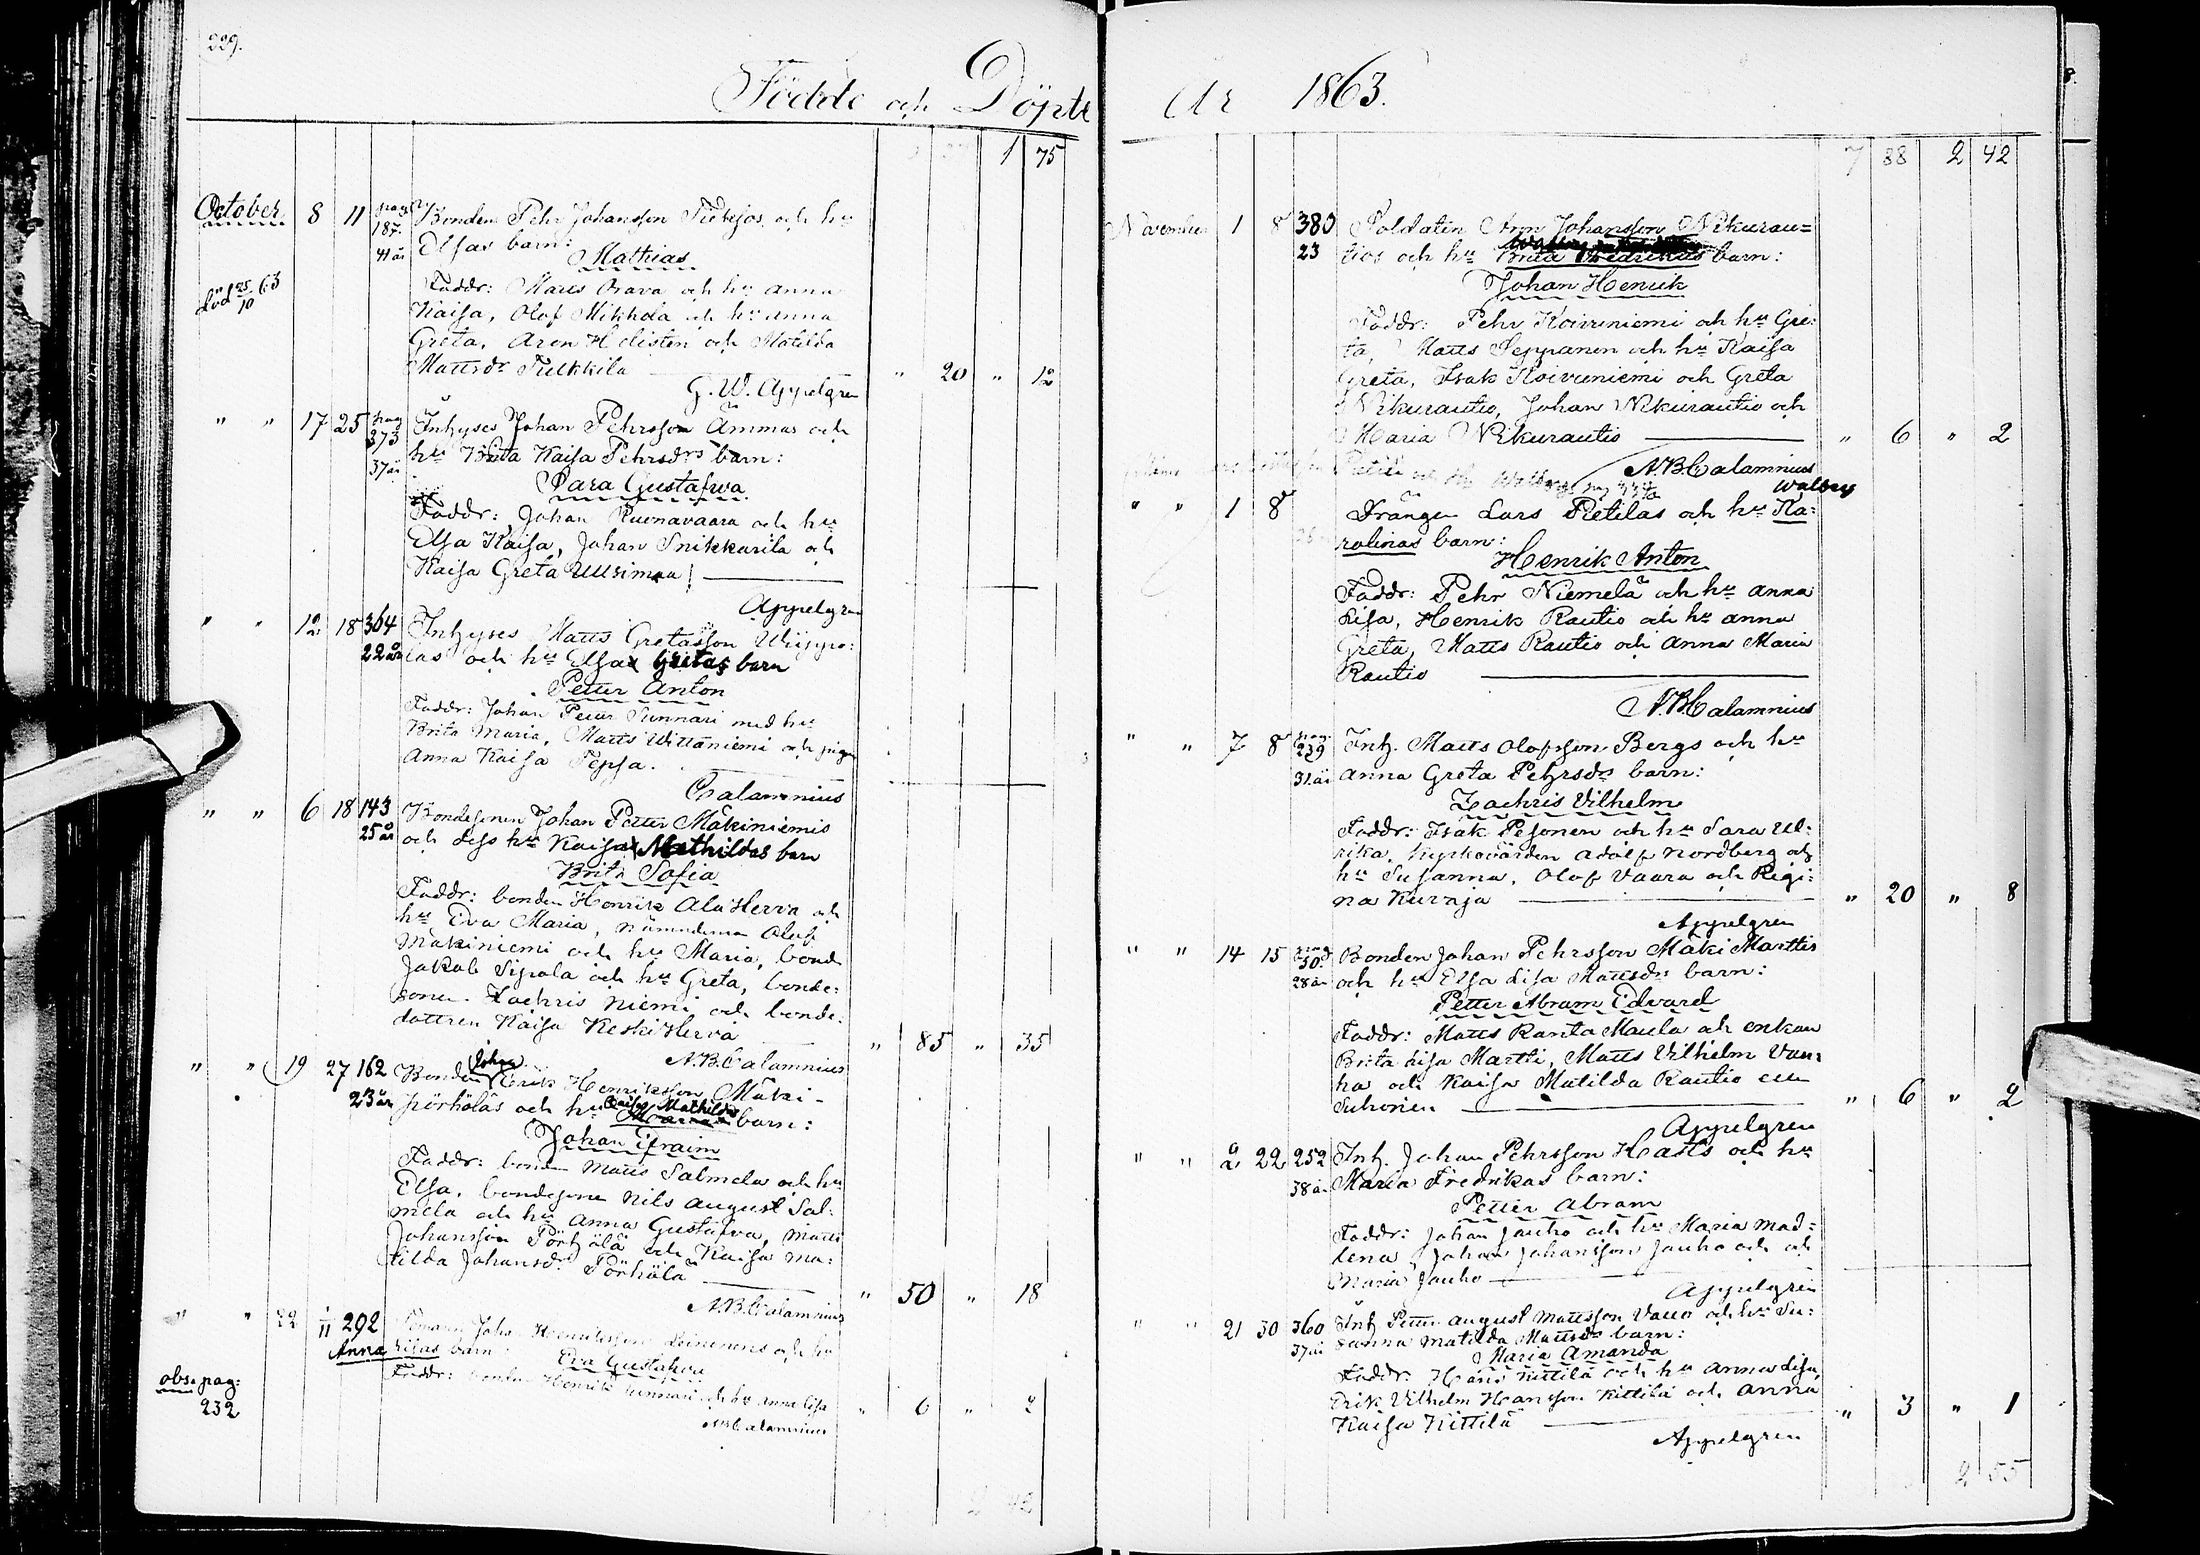 229.
Födde och Döpte
1 75
October 8 11 pag 187. 41 år Bonden Pehr Johansson och hu
Elsas barn:
Mathias
död 25/10 63
Faddr: Matts Orava och hu Anna
Kaisa, Olof Mikkola och hu Anna
Greta, Aron Helisten och Matilda
Mattsdr " 20 " 12
G. W. Appelgren
" " 17 25 pag 373 37 år Inhyses Johan Pehrsson Ämmas och
hu Brita Kaisa Pehrsdrs barn:
Sara Gustafva
Faddr: Johan Kuonavaara och hu
Elsa Kaisa, Johan Snikkarila och
Kaisa Greta Uusimaa
Appelgren
" " 12 18 364 Inhyses Matts Gretasson Wiippo:
22 år las och hu Elsa Gretas barn
Petter Anton
Faddr: Johan Petter Sunnari med hu
Brita Maria, Matts Wittaniemi och pigan
Anna Kaisa Tepsa.
Calamnius
" " 6 18 143 Bondesonen Johan Petter Mäkiniemis
25 år och dess hu Kaisa Mathildas barn
Brita Sofia
Faddr: bonden Henrik AlaHerva och
hu Eva Maria, nämndeman Olof
Mäkiniemi och hu Maria, bond
Jakob Sipola och hu Greta, bonde:
sonen Zachris Niemi och bonde:
dottren Kaisa KeskiHerva " 85 " 35
A.B. Calamnius
" " 19 27 162 Bonden Johan Erik Henriksson Mäki-
23 år pörhöläs och hu Caisa Mathildas barn:
Johan Efraim
Faddr: bonden Matts Salmela och hu
Elsa, bondesonen Nils August Sal:
mela och hu Anna Gustafva, Matts
Johansson Pörhölä och Kaisa Ma:
tilda Johansdr Pörhölä " 50 " 18
A.B. Calamnius
" " 22 1/11 292 Johan Henriksson Leinonens och hu
Anna Lisas barn: Eva Gustafva
Faddr: bonden Henrik Sunnari och hu Anna Lisa " 6 " 2
obs. pag: 232
A.B. Calamnius
2 42
År 1863.
7 88 2 42
November 1 8 380 Soldaten Aron Johansson Nikurau=
23 tios och hu Brita barn:
Johan Henrik
Faddr: Pehr Koivuniemi och hu Gre:
ta, Matts Seppänen och hu Kaisa
Greta, Isak Koivuniemi och Greta
Nikurautio, Johan Nikurautio och
Maria Nikurautio " 6 " 2
A.B. Calamnius
Walborg
" " 1 8 Drängen Lars Pietilas och hu Ka:
rolinas barn:
Henrik Anton
Faddr: Pehr Niemelä och hu Anna
Lisa, Henrik Rautio och hu Anna
Greta, Matts Rautio och Anna Maria
Rautio
A.B. Calamnius
" " 7 8 pag. 239 Inh. Matts Olofsson Bergs och hu
31 år Anna Greta Pehrsdrs barn:
Zachris Vilhelm
Faddr: Isak Pesonen och hu Sara Ul:
rika, kyrkovärden Adolf Nordberg och
hu Susanna, Olof Vaara och Regi:
na Kuvaja " 20 " 8
Appelgren
" " 14 15 pag 50. Bonden Johan Pehrsson MäkiMarttis
28 år och hu Elsa Lisa Mattsdrs barn:
Petter Abram Edvard
Faddr: Matts RantaMaula och enkan
Brita Lisa Martti, Matts Vilhelm Van:
ha och Kaisa Matilda Rautio
Suhonen " 6 " 2
Appelgren
" " 2 22 252 Inh. Johan Pehrsson Hasts och hu
38 år Maria Fredrikas barn:
Petter Abram
Faddr: Johan Jauho och hu Maria Mad=
lena, Johan Johansson Jauho och och
Maria Jauho
Appelgren
" " 21 30 360 Inh Petter August Mattsson och hu Su:
37 år sanna Matilda Mattsdrs barn:
Maria Amanda
Faddr: Hans Kittilä och hu Anna Lisa,
Erik Vilhelm Hansson Kittilä och Anna
Kaisa Kittilä " 3 " 1
Appelgren
2 55